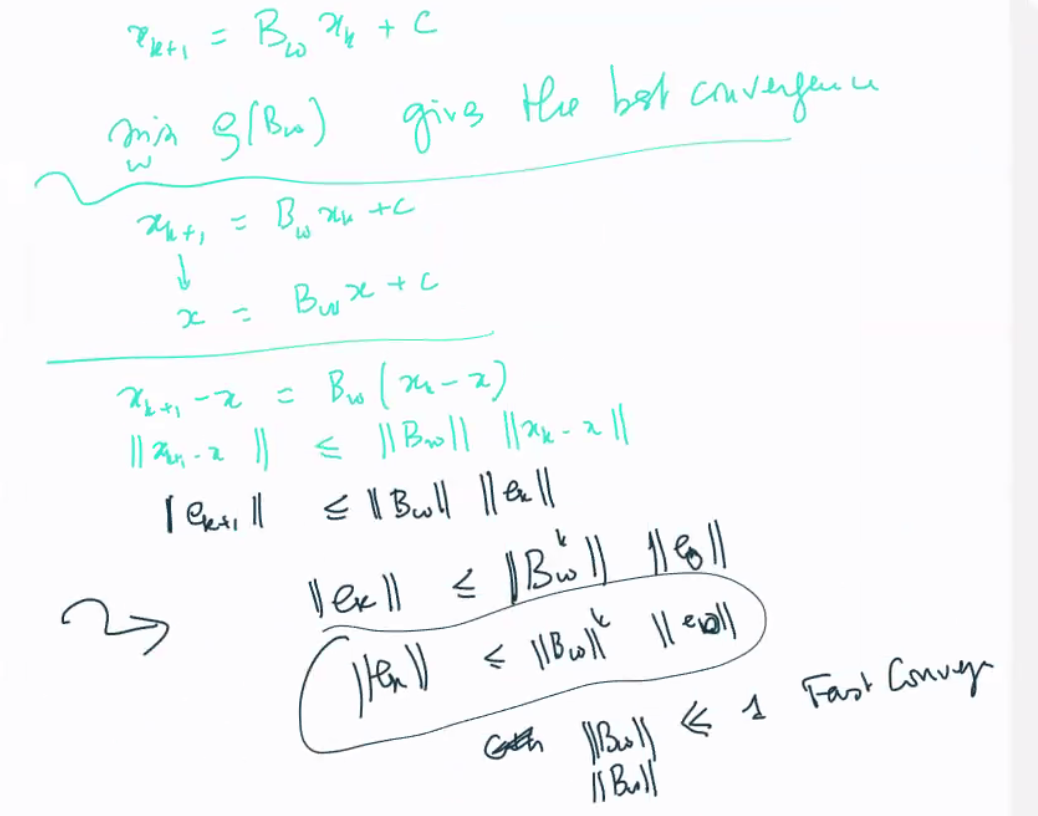 x_{k+1} = B_ω x_k + C
min_ω ρ(B_ω) gives the best convergence
x_{k+1} = B_ω x_k + C
↓
x = B_ω x + C
x_{k+1} - x = B_ω (x_k - x)
||x_{k+1} - x|| ≤ ||B_ω|| ||x_k - x||
||e_{k+1}|| ≤ ||B_ω|| ||e_k||
||e_k|| ≤ ||B_ω^k|| ||e_0||
||e_k|| ≤ ||B_ω||^k ||e_0||
||B_ω|| ≪ 1 Fast Converge
||B_ω||